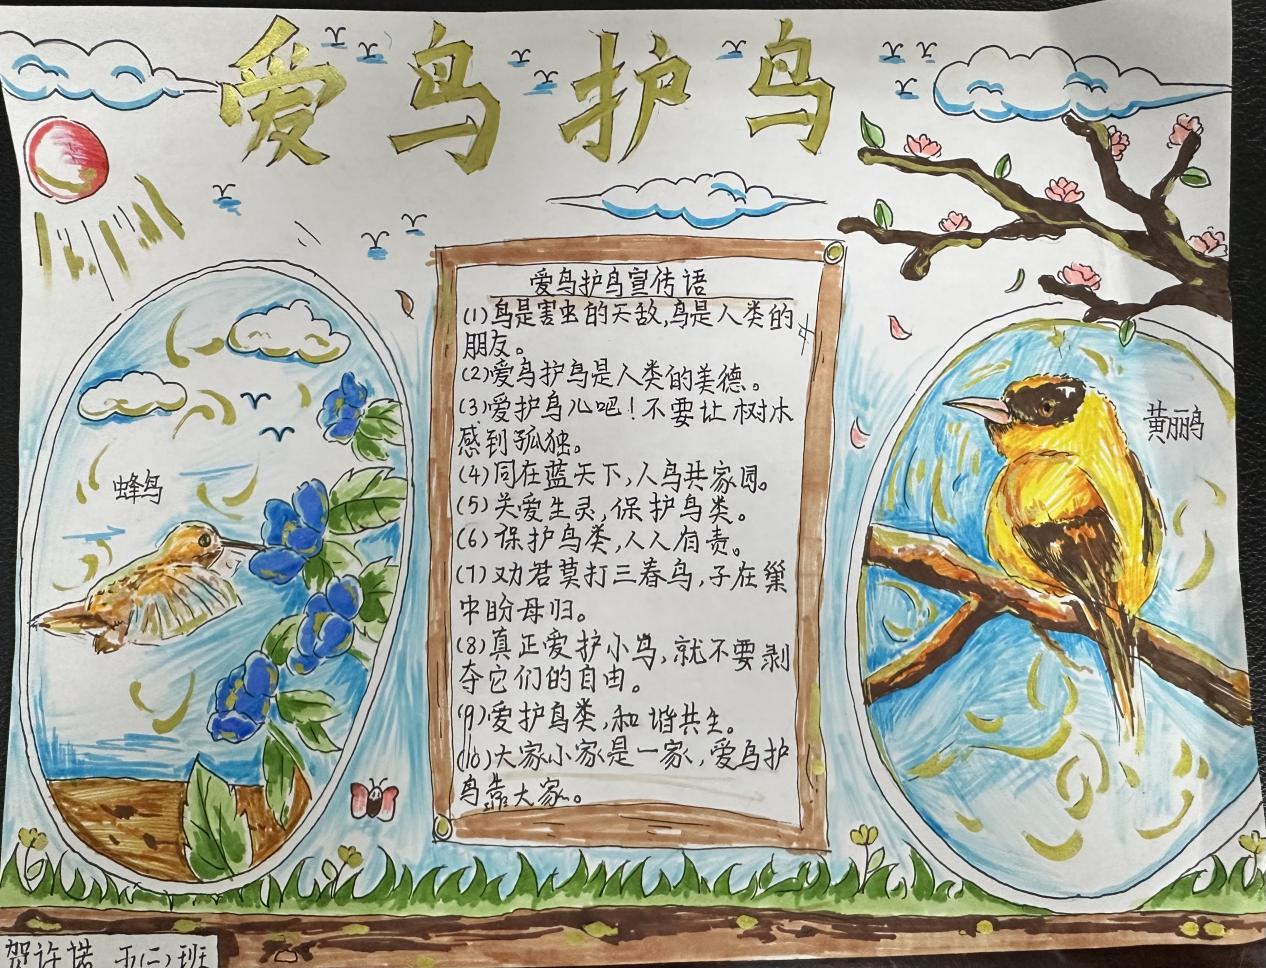 爱鸟护鸟
爱鸟护鸟宣传语
(1)鸟是害虫的天敌,鸟是人类的
朋友。
(2)爱鸟护鸟是人类的美德。
(3)爱护鸟儿吧!不要让树木
感到孤独。
(4)同在蓝天下,人鸟共家园。
(5)关爱生灵,保护鸟类。
(6)保护鸟类,人人有责。
(7)劝君莫打三春鸟,子在巢
中盼母归。
(8)真正爱护小鸟,就不要剥
夺它们的自由。
(9)爱护鸟类,和谐共生。
(10)大家小家是一家,爱鸟护
鸟靠大家。
蜂鸟
黄鹂鸟
贺许诺 五(二)班